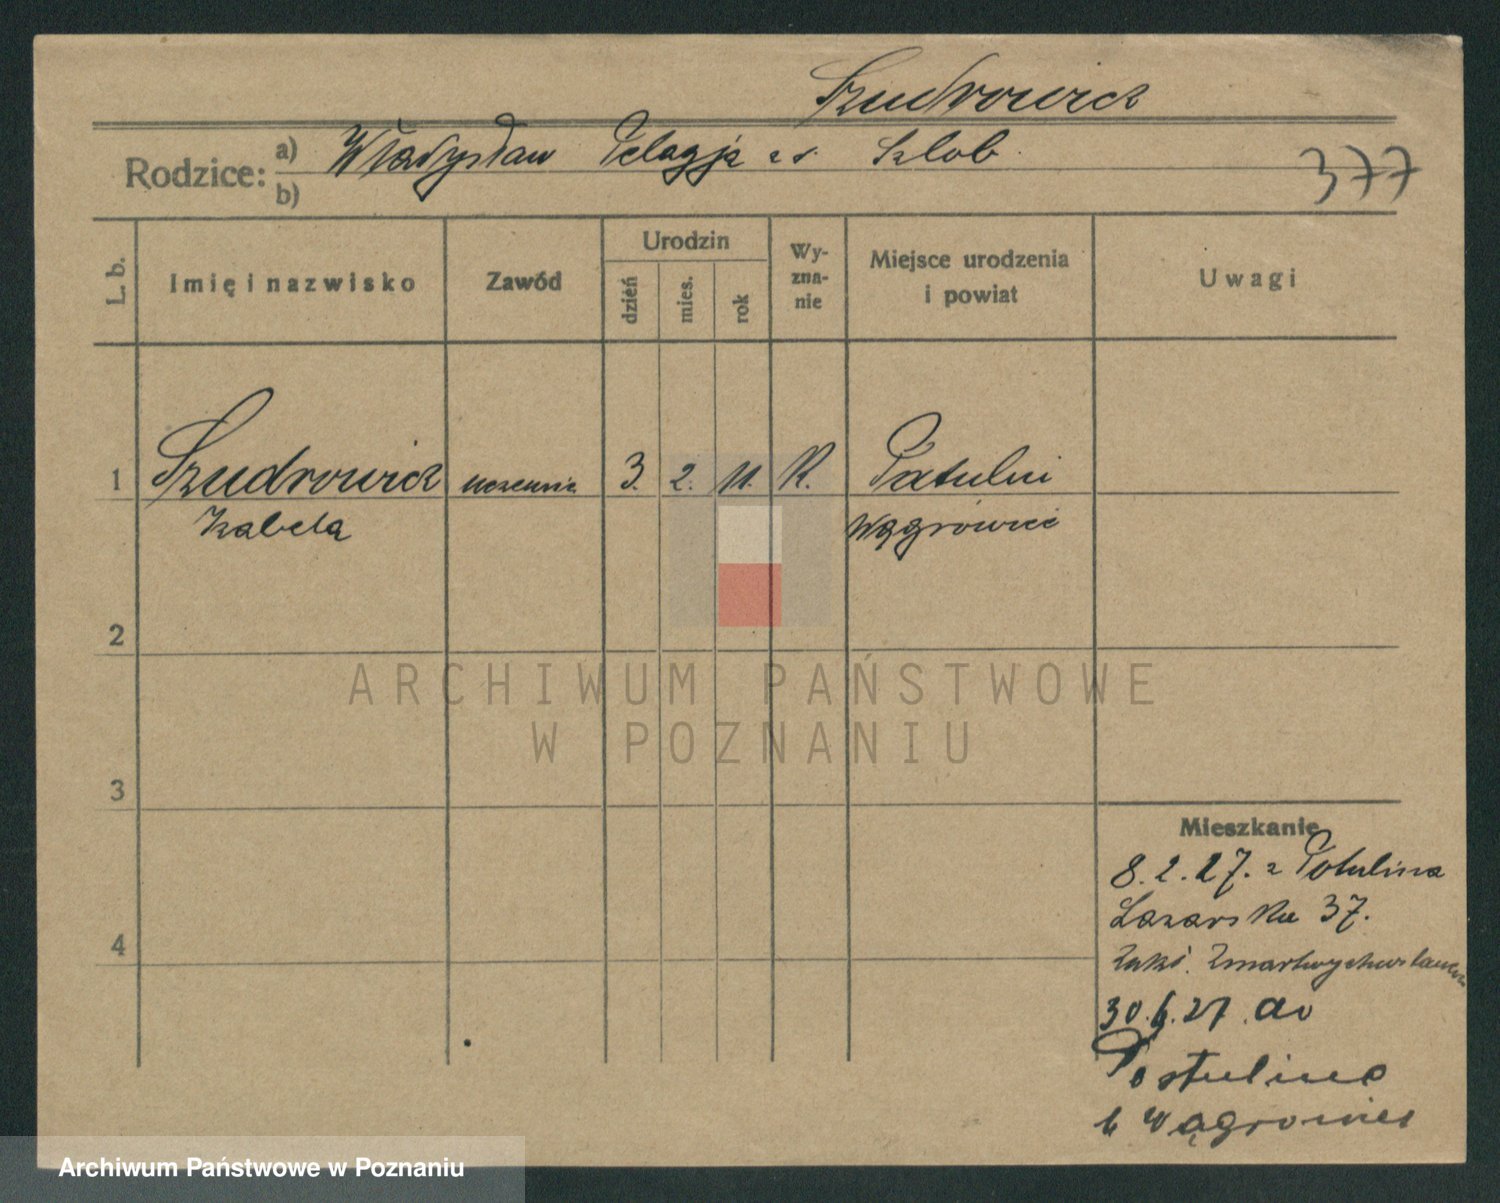 Szudrowicz
Rodzice: a) Władysław Pelagja z d. Szlob
b)
377
L. b.
Imię i nazwisko
Zawód
Urodzin
dzień
mies.
rok
Wy-
zna-
nie
Miejsce urodzenia
i powiat
Uwagi
1 Szudrowicz uczennica 3. 2. 11. K. Patulin
Izabela Wągrowiec
2
ARCHIWUM PAŃSTWOWE
W POZNANIU
3
Mieszkanie
8.2.27. z Potulina
Łazarska 37.
Zakł. Zmartwychwstanek
4
30.6.27. do
Postulina
p Wągrowiec
Archiwum Państwowe w Poznaniu